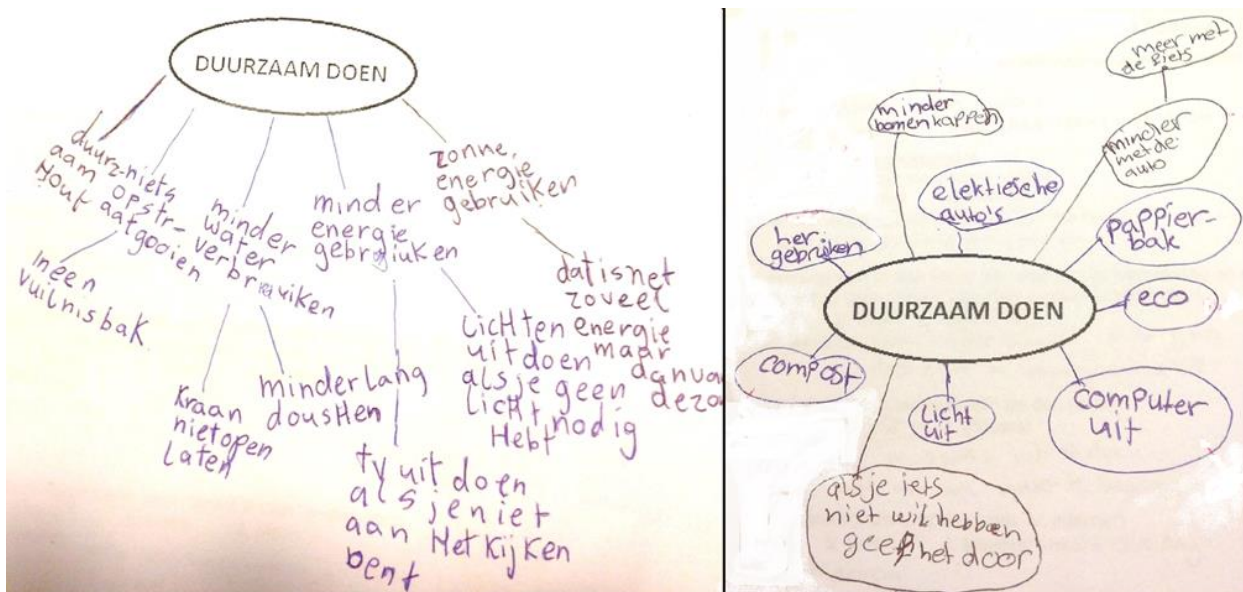 DUURZAAM DOEN
duurz-
aam
Hout
niets
opstr-
aatgooien
in een
vuilnisbak
minder
water
verbruiken
Kraan
niet open
laten
minder lang
dousHen
minder
energie
gebruiken
tv uit doen
als je niet
aan Het Kijken
bent
LicHten
uit doen
als je geen
licHt nodig
Hebt
zonne,
energie
gebruiken
dat is net
zoveel
energie
maar
danva
dezo
DUURZAAM DOEN
minder
bomen kappen
meer met
de fiets
minder
met de
auto
elektiesche
auto's
her
gebruiken
pappier-
bak
eco
compost
Licht
uit
computer
uit
als je iets
niet wil hebben
geef het door